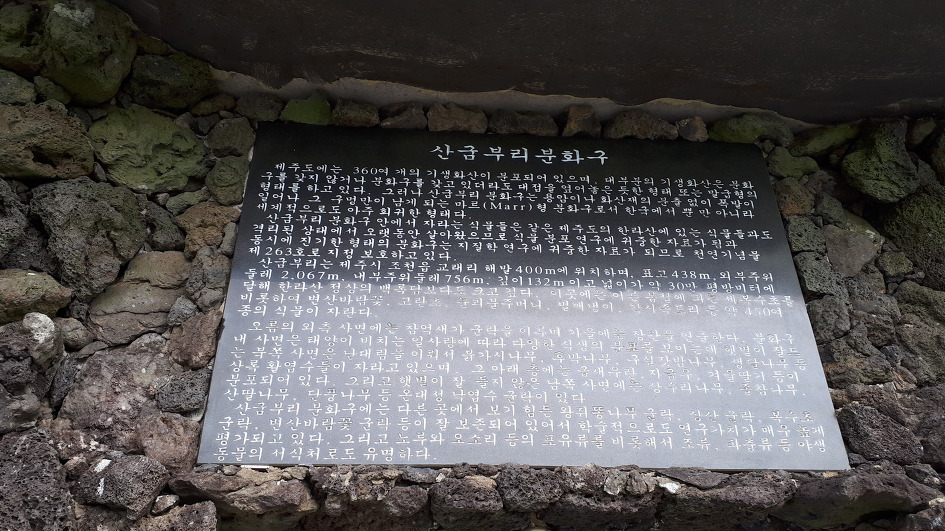 산굼부리분화구
제주도에는 360여 개의 기생화산이 분포되어 있으며, 대부분의 기생화산은 분화
구를 갖지 않거나 분화구를 갖고 있더라도 대접을 엎어놓은 듯한 형태 또는 말굽형의
형태를 하고 있다. 그러나 산굼부리 분화구는 용암이나 화산재의 분출 없이 폭발이
일어나 그 구멍만이 남게 되는 마르(Marr)형 분화구로서 한국에서 뿐 만 아니라
세계적으로도 아주 희귀한 형태다.
산굼부리 분화구 안에서 자라는 식물들은 같은 제주도의 한라산에 있는 식물들과도
격리된 상태에서 오랫동안 살아왔으므로 식물 분포 연구에 귀중한 자료가 된과
동시에 진기한 형태의 분화구는 지질학 연구에 귀중한 자료가 되므로 천연기념물
제263호로 지정 보호하고 있다.
산굼부리는 제주시 조천읍 교래리 해발 400m에 위치하며, 표고 438m, 외부주위
둘레 2,067m, 내부주위둘레 756m, 깊이 132m이고 넓이가 약 30만 평방미터에
달해 한라산 정상의 백록담보다도
비롯하여 변산바람꽃, 약 450여
종의 식물이 자란다.
오름의 외측 사면에는 참억새가 군락을 이루며 가을에는 장관을 연출한다. 분화구
내 사면은 태양이 비치는 일사량에 따라 다양한 식생의 햇볕이 잘드
는 북쪽 사면은 난대림을 이뤄서 붉가시나무,
상록 활엽수들이 자라고 있으며, 그 아래 층에는 금새우란, 등이
분포되어 있다. 그리고 햇볕이 잘 들지 않은 남쪽 사면에는
산딸나무, 단풍나무 등 온대성 낙엽수 군락이 있다.
산굼부리 분화구에는 다른 곳에서 보기 힘든 왕쥐똥나무 군락, 상사 군락, 복수초
군락, 변산바람꽃 군락 등이 잘 보존되어 있어서 학술적으로도 연구가치가 매우 높게
평가되고 있다. 그리고 노루와 오소리 등의 포유류를 비롯해서 조류, 파충류 등 야생
동물의 서식처로도 유명하다.